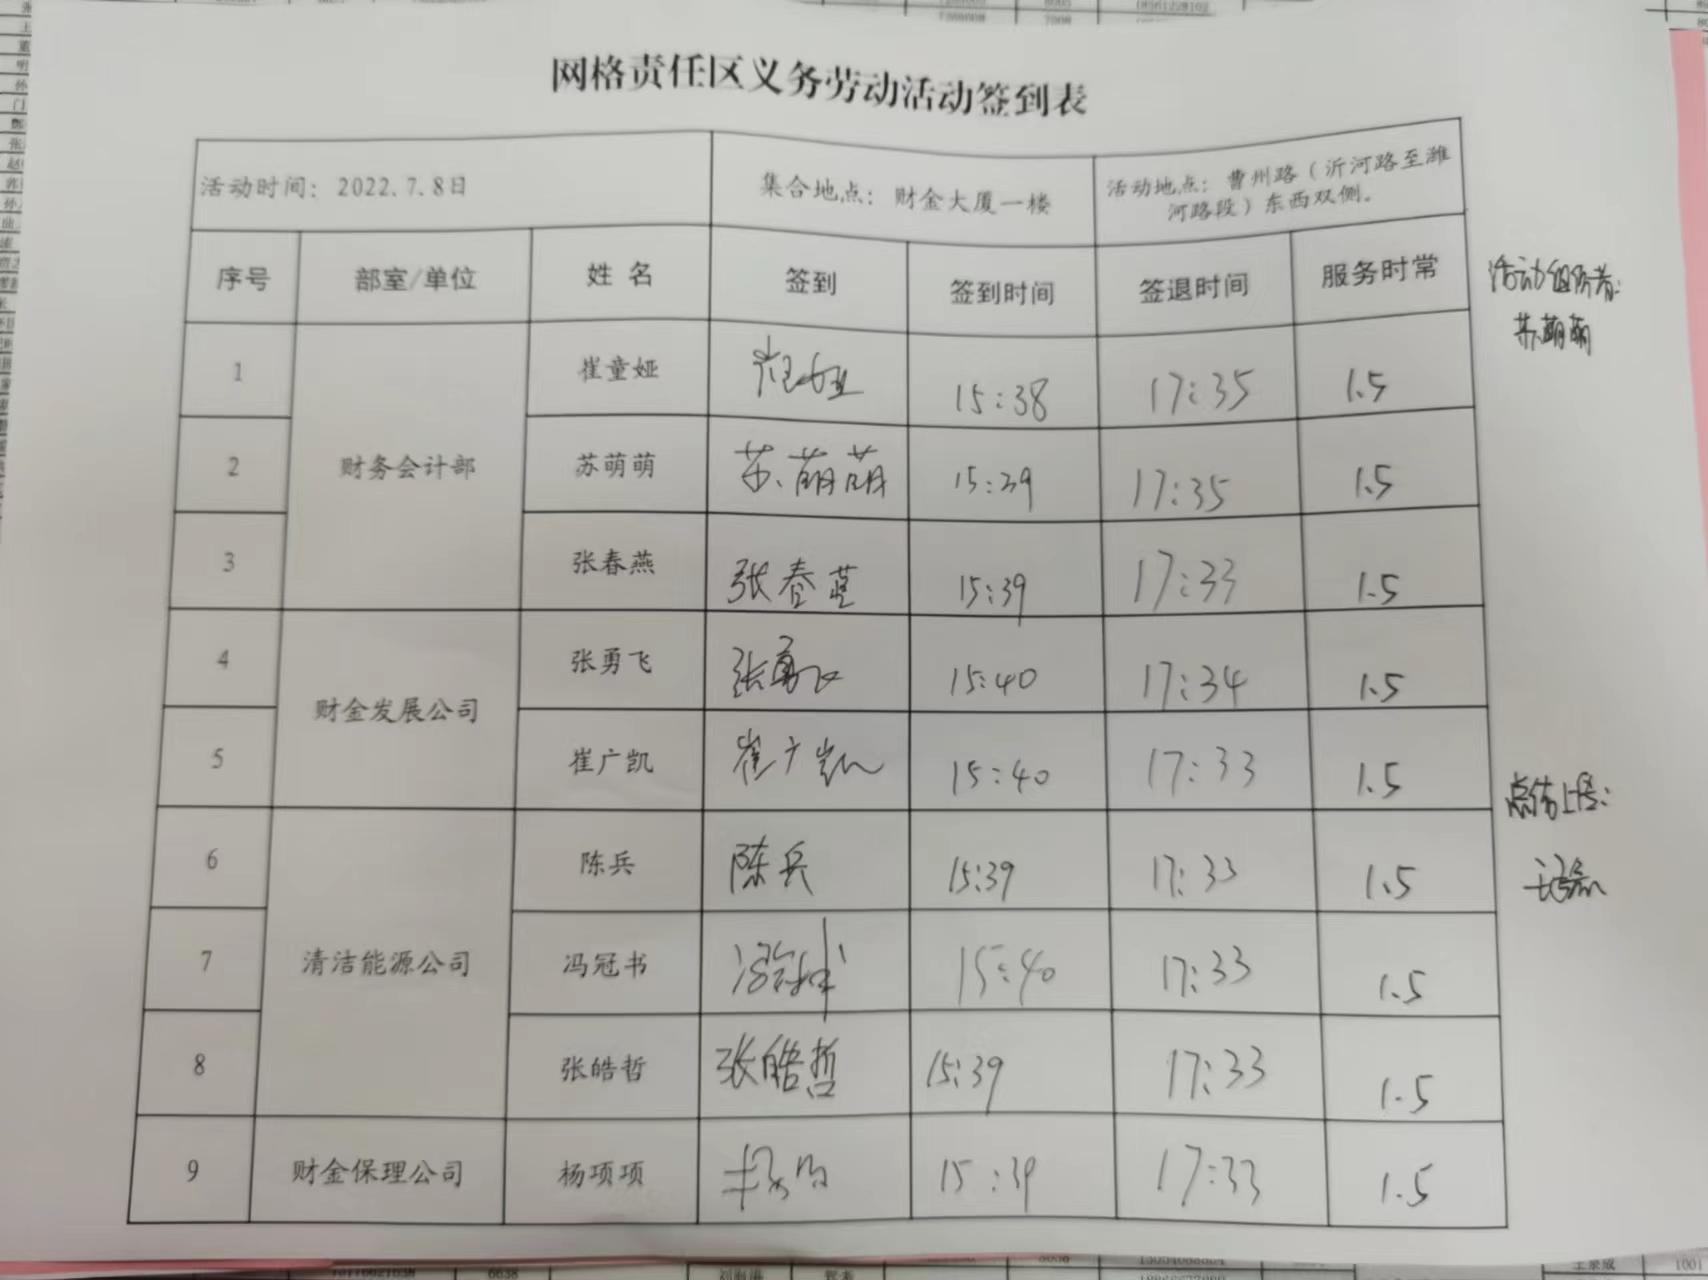 网格责任区义务劳动活动签到表
活动时间：2022.7.8日 集合地点：财金大厦一楼 活动地点：曹州路（沂河路至潍
河路段）东西双侧。
序号 部室/单位 姓名 签到 签到时间 签退时间 服务时常
活动组织者：
苏萌萌
1 崔童娅 15:38 17:35 1.5
2 财务会计部 苏萌萌 苏萌萌 15:39 17:35 1.5
3 张春燕 张春燕 15:39 17:33 1.5
4 张勇飞 张勇飞 15:40 17:34 1.5
财金发展公司
5 崔广凯 崔广凯 15:40 17:33 1.5
6 陈兵 陈兵 15:39 17:33 1.5
7 清洁能源公司 冯冠书 冯冠书 15:40 17:33 1.5
8 张皓哲 张皓哲 15:39 17:33 1.5
9 财金保理公司 杨项项 15:39 17:33 1.5